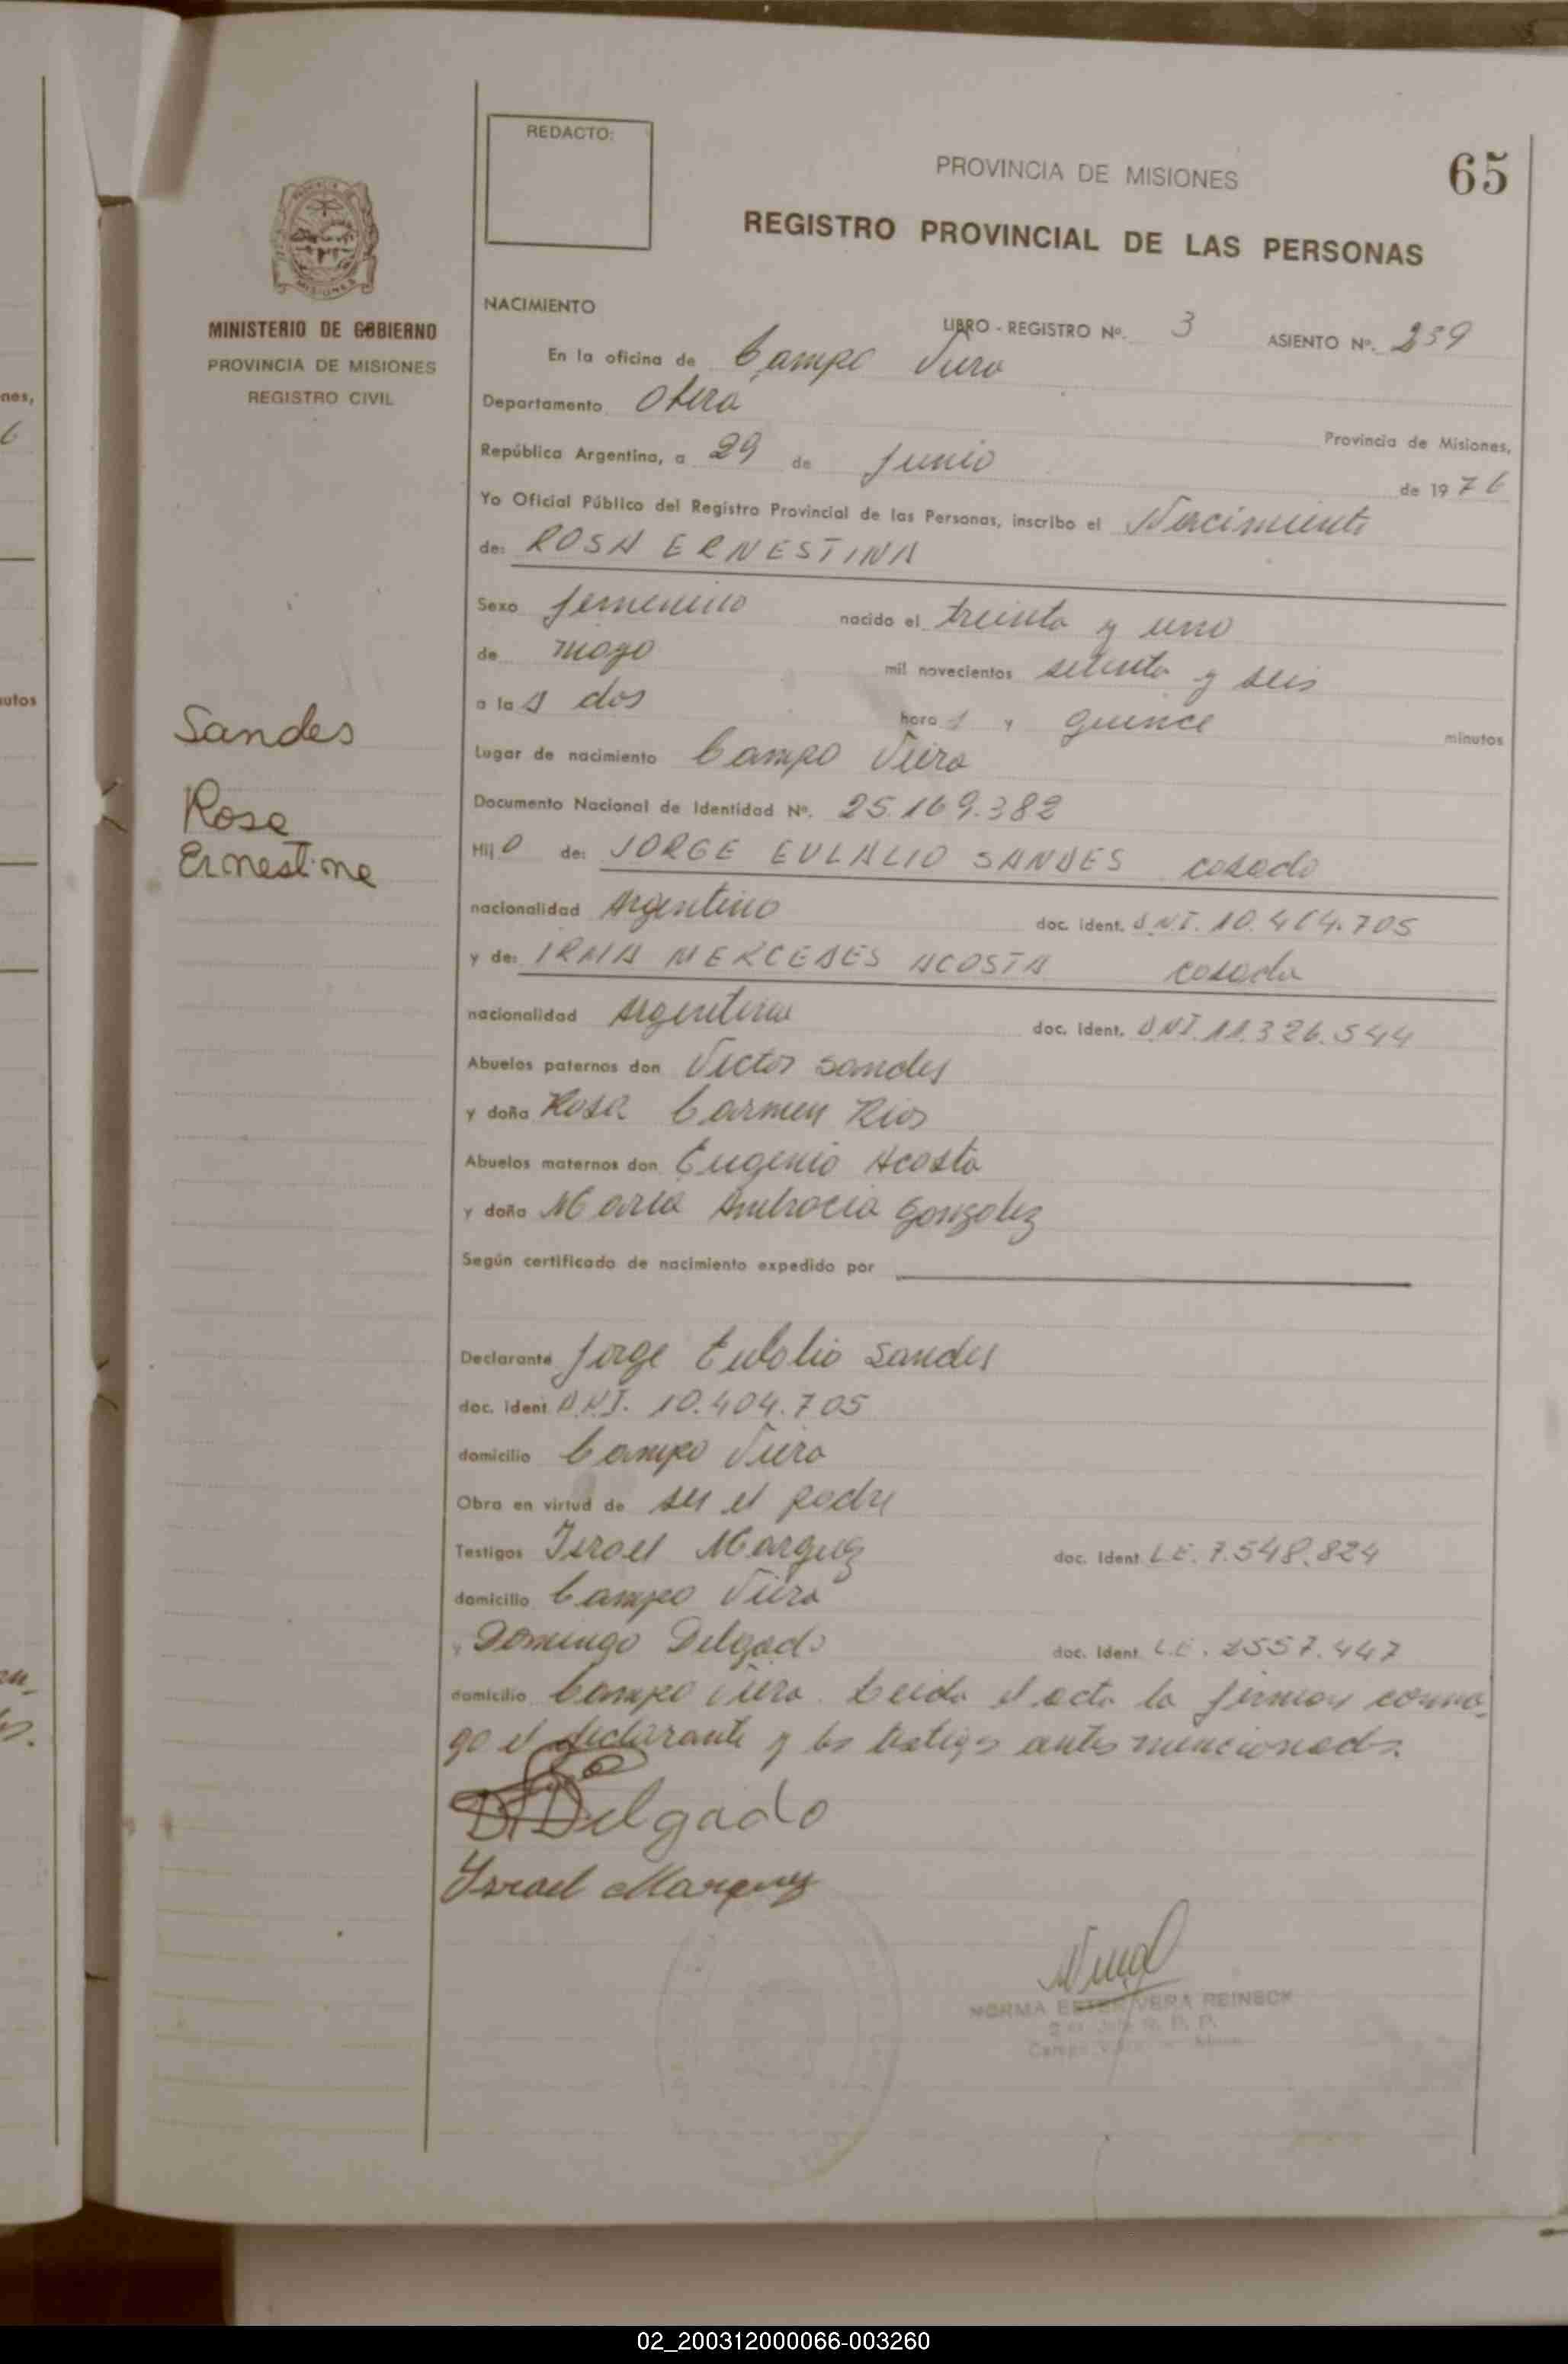 REDACTO:
PROVINCIA DE MISIONES
65
REGISTRO PROVINCIAL DE LAS PERSONAS
MISIONES
MINISTERIO DE GOBIERNO
PROVINCIA DE MISIONES
REGISTRO CIVIL
nes,
6
utos
Sandes
Rosa
Ernestina
NACIMIENTO
LIBRO - REGISTRO Nº. 3 ASIENTO Nº. 259
En la oficina de Campo Viera
Departamento Oberá
Provincia de Misiones,
República Argentina, a 29 de Junio de 1976
Yo Oficial Público del Registro Provincial de las Personas, inscribo el Nacimiento
de: ROSA ERNESTINA
Sexo femenino nacido el treinta y uno
de mayo mil novecientos setenta y seis
a las dos hora s y quince minutos
Lugar de nacimiento Campo Viera
Documento Nacional de Identidad Nº. 25.169.382
Hijo de: JORGE EULALIO SANDES casado
nacionalidad Argentino doc. ident. D.N.I. 10.404.705
y de: IRMA MERCEDES ACOSTA casada
nacionalidad Argentina doc. ident. D.N.I. 11.326.544
Abuelos paternos don Victor Sandes
y doña Rosa Carmen Rios
Abuelos maternos don Eugenio Acosta
y doña Maria Ambrocia Gonzalez
Según certificado de nacimiento expedido por
Declarante Jorge Eulalio Sandes
doc. ident D.N.I. 10.404.705
domicilio Campo Viera
Obra en virtud de ser el padre
Testigos Israel Marquez doc. ident L.E. 7.548.824
domicilio Campo Viera
y Domingo Delgado doc. ident L.E. 2557.447
domicilio Campo Viera. Leida el acta la firman conmi-
go el declarante y los testigos antes mencionados.
D. Delgado
Israel Marquez
NORMA ESTER VERA REINECK
Campo
02_200312000066-003260